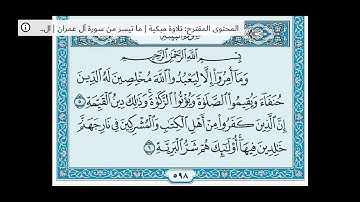 المحتوى المقترح: تلاوة مبكية | ما تيسر من سورة آل عمران | ال...
بِسْمِ ٱللَّهِ ٱلرَّحْمَٰنِ ٱلرَّحِيمِ
وَمَآ أُمِرُوٓا۟ إِلَّا لِيَعْبُدُوا۟ ٱللَّهَ مُخْلِصِينَ لَهُ ٱلدِّينَ
حُنَفَآءَ وَيُقِيمُوا۟ ٱلصَّلَوٰةَ وَيُؤْتُوا۟ ٱلزَّكَوٰةَ ۚ وَذَٰلِكَ دِينُ ٱلْقَيِّمَةِ ٥
إِنَّ ٱلَّذِينَ كَفَرُوا۟ مِنْ أَهْلِ ٱلْكِتَٰبِ وَٱلْمُشْرِكِينَ فِى نَارِ جَهَنَّمَ
خَٰلِدِينَ فِيهَآ ۚ أُو۟لَٰٓئِكَ هُمْ شَرُّ ٱلْبَرِيَّةِ ٦
٥٩٨